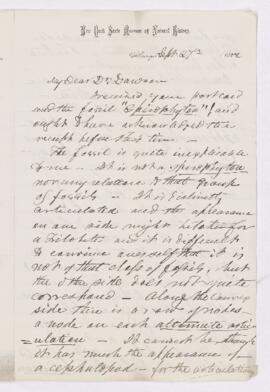 New York State Museum of Natural History,
Albany, Sept. 27th
My dear Dr Dawson
I received your postcard
and the fossil "Spirophyton" and
ought to have acknowledged the
receipt before this time -
The fossil is quite inexplicable
to me. It is not a Spirophyton
nor any relation to that group
of fossils - It is distinctly
articulated and the appearance
on one side might be taken for
a Trilobite and it is difficult
to convince oneself that it is
not of that class of fossils, but
the other side does not quite
correspond - Along the convex
side there is a row of nodes
a node on each alternate artic-
ulation - It cannot be, though
it has much the appearance of
a cephalopod - for the articulation